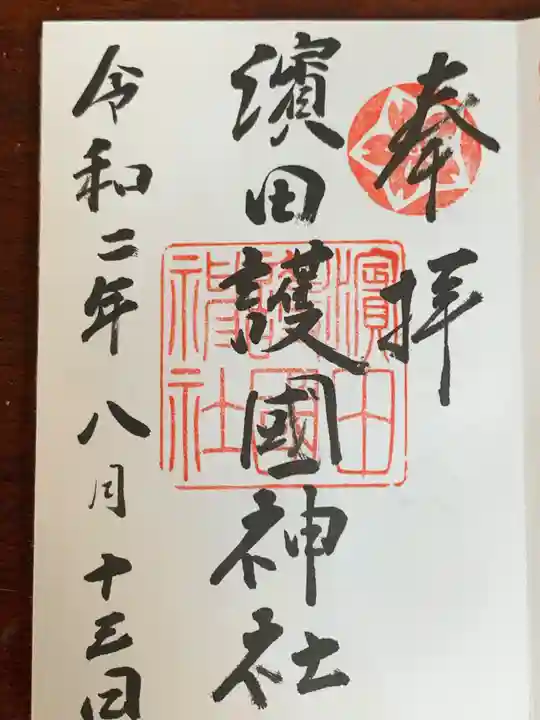 奉拝
濱田護國神社
濱田護國神社
令和二年八月十三日